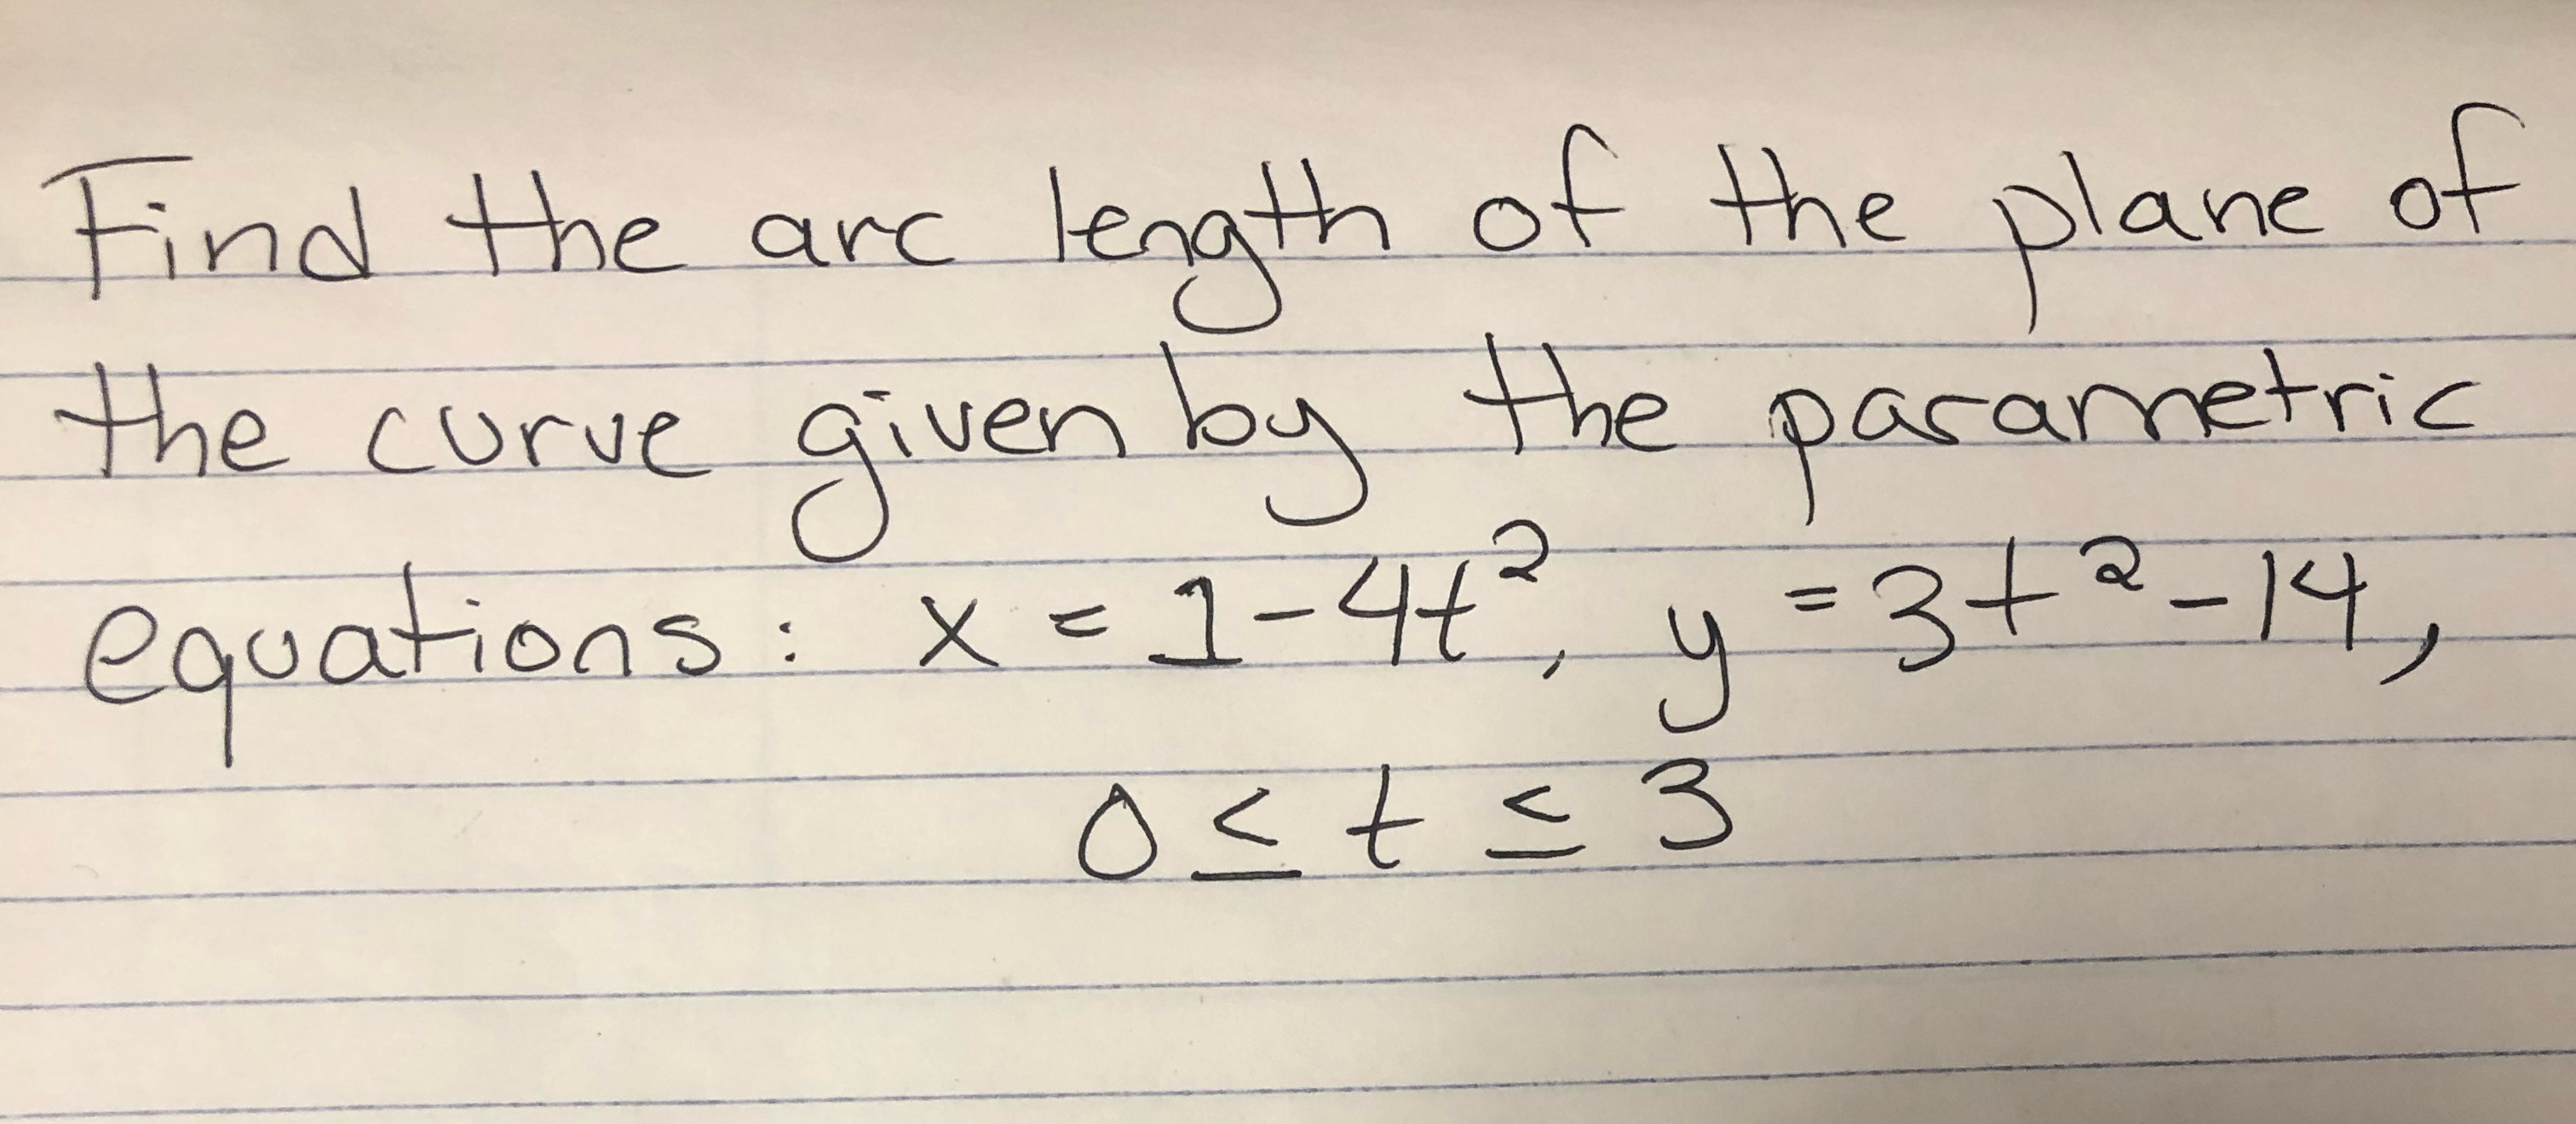 Find the arc length of the plane of
the curve given by the parametric
equations: x = 1-4t², y = 3t²-14,
0 ≤ t ≤ 3